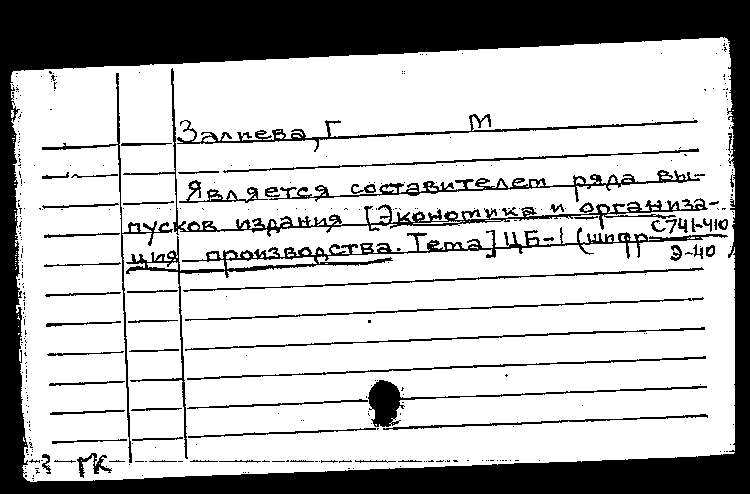 Залиева, Г М
Является составителем ряда вы-
пусков издания [Экономика и организа-
ция производства. Тема] ЦБ-1 (шифр С741-410
Э-40)
3 ГК